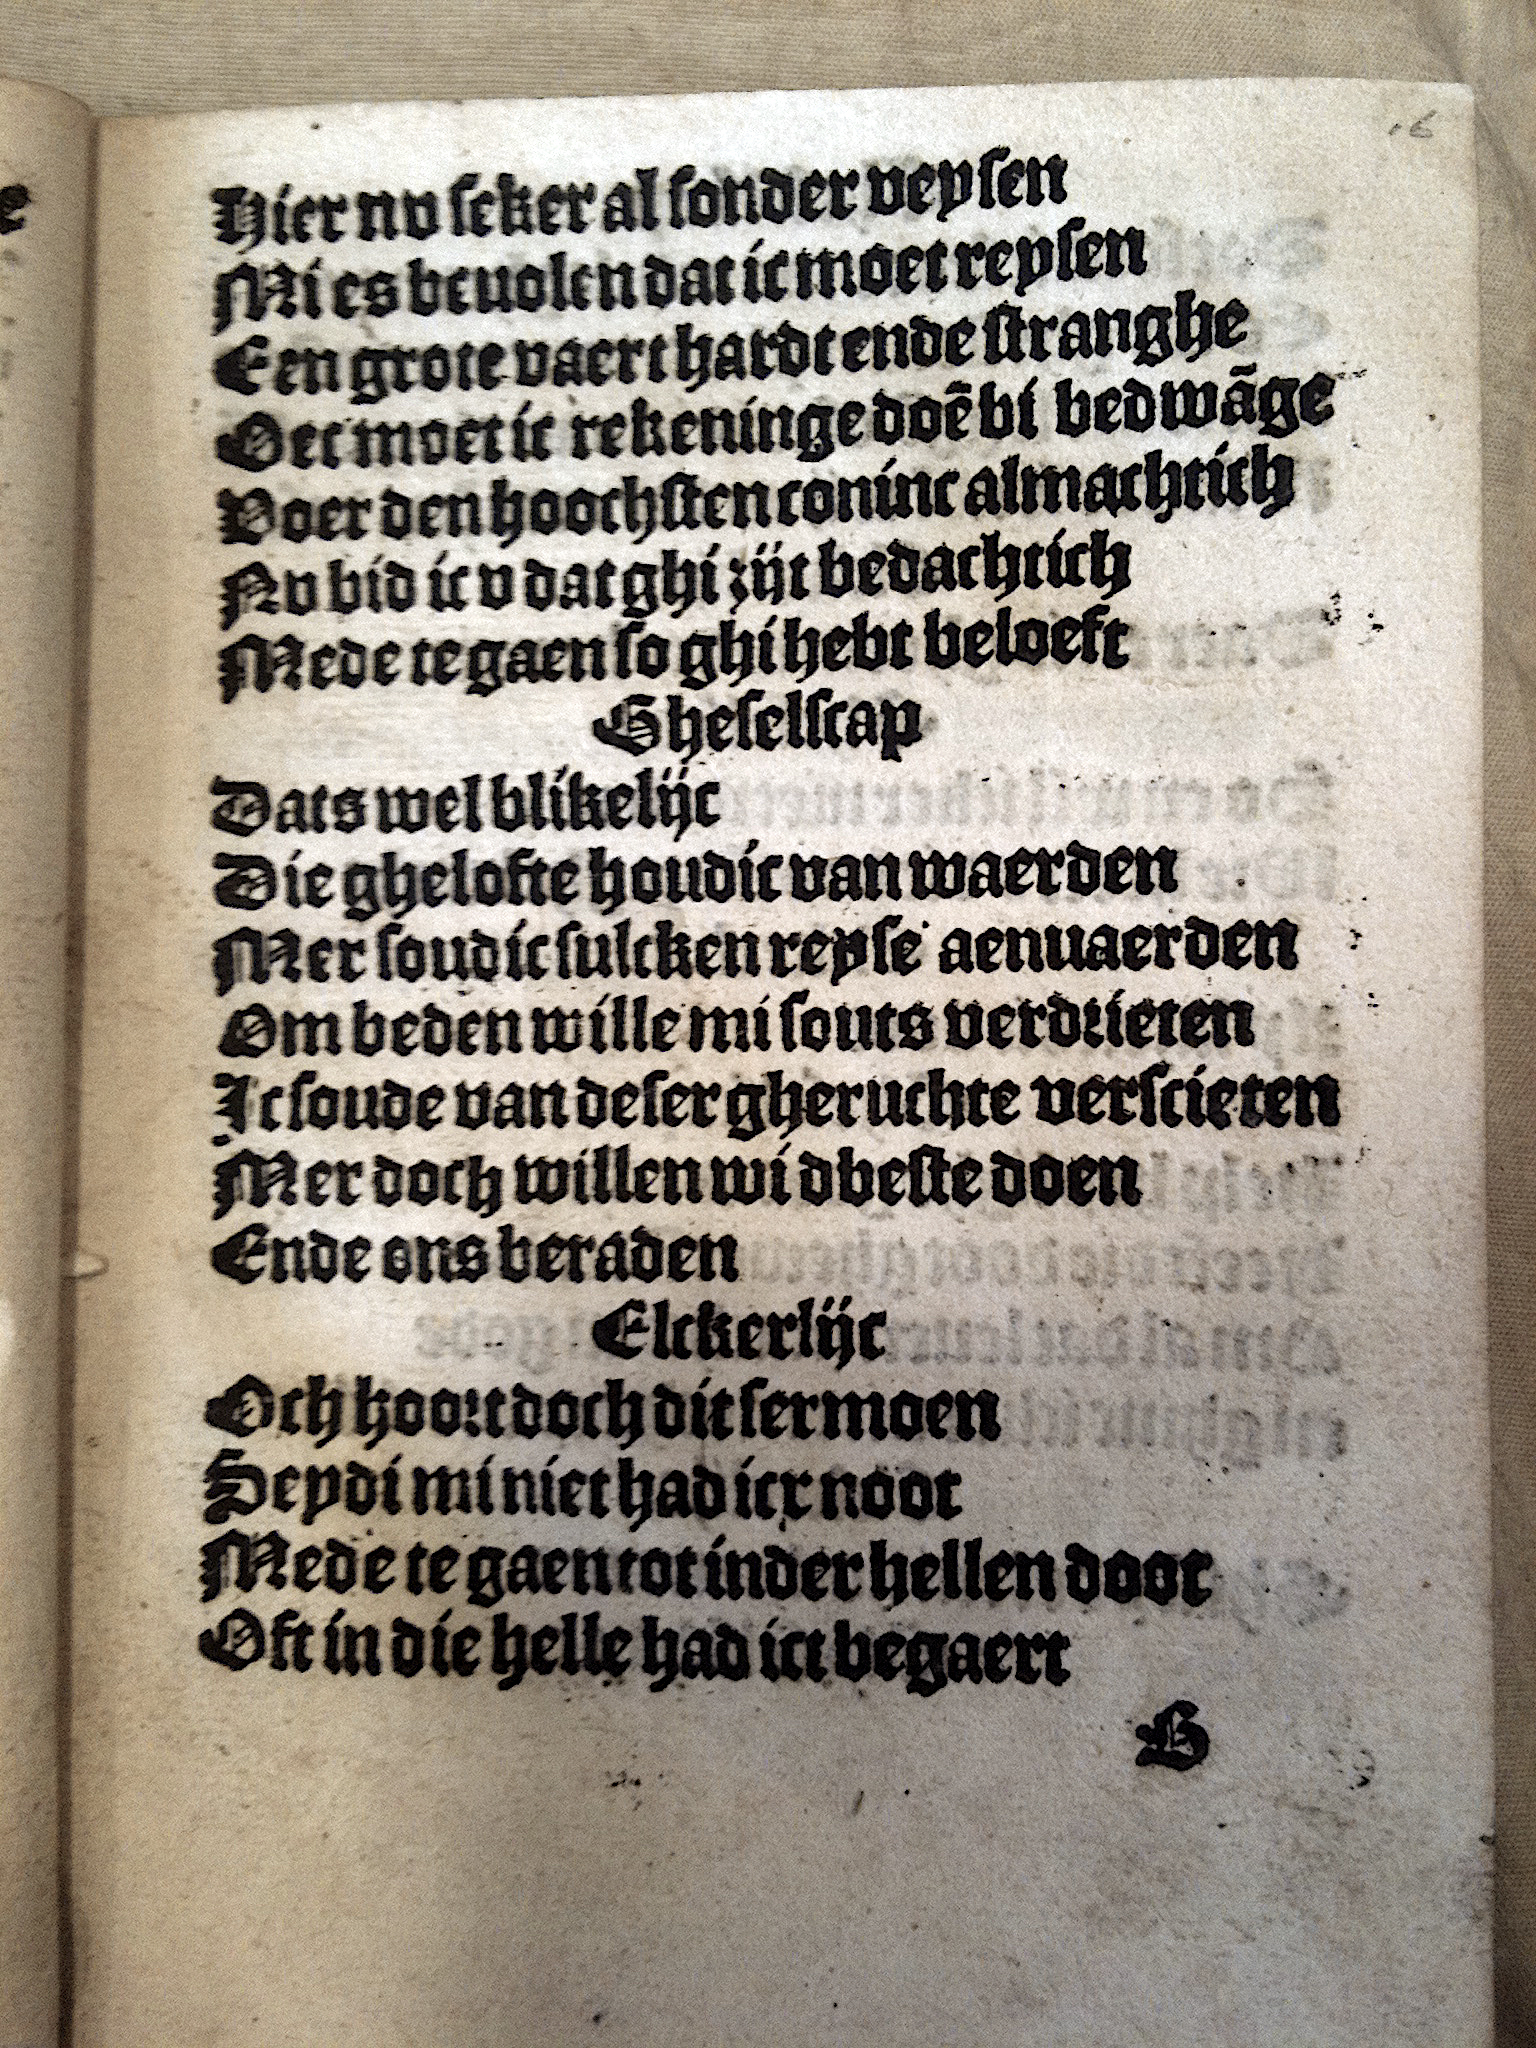 16
Hier nv seker al sonder veysen
Mi es beuolen dat ic moet reysen
Een grote vaert hardt ende stranghe
Oec moet ic rekeninge doē bi bedwāge
Voer den hoochsten coninc almachtich
Nv bid ic v dat ghi zijt bedachtich
Mede te gaen so ghi hebt beloeft
Gheselscap
Dats wel blikelijc
Die ghelofte houdic van waerden
Mer soudic sulcken reyse aenuaerden
Om beden wille mi souts verdrieten
Ic soude van deser gheruchte verscieten
Mer doch willen wi dbeste doen
Ende ons beraden
Elckerlijc
Och hoort doch dit sermoen
Seydi mi niet had icx noot
Mede te gaen tot inder hellen doot
Oft in die helle had ict begaert
B